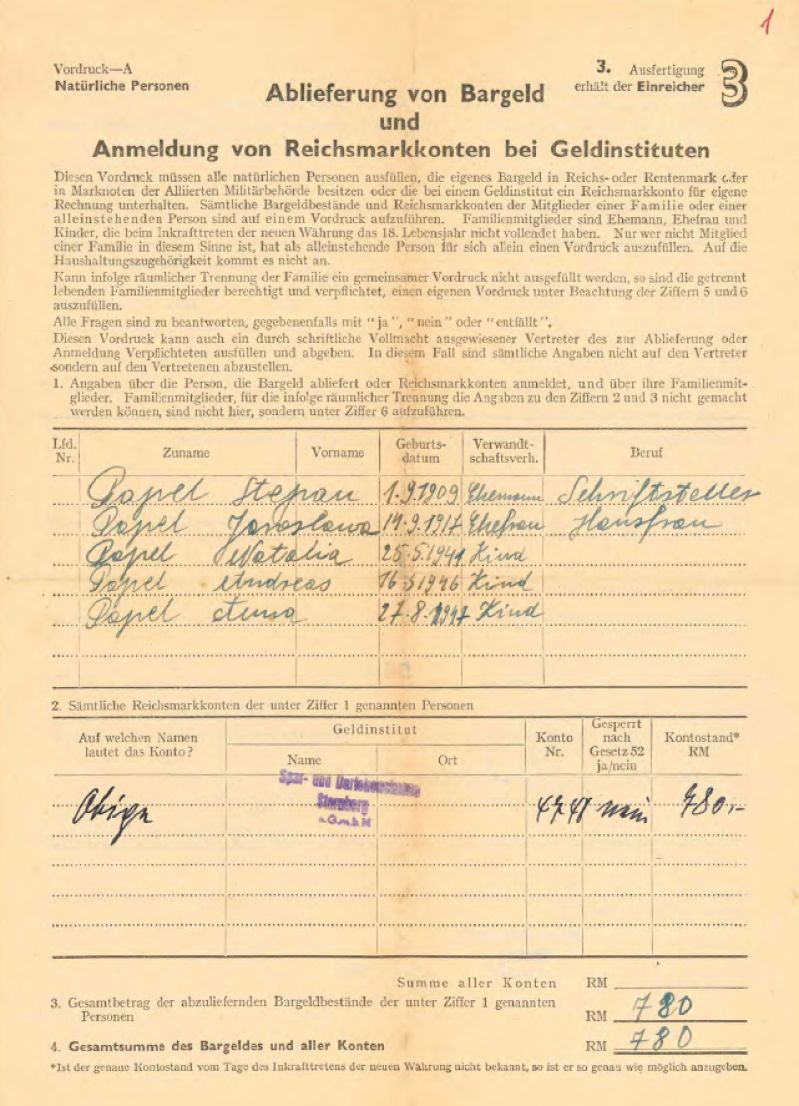 1
Vordruck—A
Natürliche Personen
3. Ausfertigung
erhält der Einreicher
3
Ablieferung von Bargeld
und
Anmeldung von Reichsmarkkonten bei Geldinstituten
Diesen Vordruck müssen alle natürlichen Personen ausfüllen, die eigenes Bargeld in Reichs- oder Rentenmark oder
in Marknoten der Alliierten Militärbehörde besitzen oder die bei einem Geldinstitut ein Reichsmarkkonto für eigene
Rechnung unterhalten. Sämtliche Bargeldbestände und Reichsmarkkonten der Mitglieder einer Familie oder einer
alleinstehenden Person sind auf einem Vordruck aufzuführen. Familienmitglied sind Ehemann, Ehefrau und
Kinder, die beim Inkrafttreten der neuen Währung das 18. Lebensjahr nicht vollendet haben. Nur wer nicht Mitglied
einer Familie in diesem Sinne ist, hat als alleinstehende Person für sich allein einen Vordruck auszufüllen. Auf die
Haushaltungszugehörigkeit kommt es nicht an.
Kann infolge räumlicher Trennung der Familie ein gemeinsamer Vordruck nicht ausgefüllt werden, so sind die getrennt
lebenden Familienmitglieder berechtigt und verpflichtet, einen eigenen Vordruck unter Beachtung der Ziffern 5 und 6
auszufüllen.
Alle Fragen sind zu beantworten, gegebenenfalls mit "ja", "nein" oder "entfällt".
Diesen Vordruck kann auch ein durch schriftliche Vollmacht ausgewiesener Vertreter des zur Ablieferung oder
Anmeldung Verpflichteten ausfüllen und abgeben. In diesem Fall sind sämtliche Angaben nicht auf den Vertreter
sondern auf den Vertretenen abzustellen.
1. Angaben über die Person, die Bargeld abliefert oder Reichsmarkkonten anmeldet, und über ihre Familienmit-
glieder. Familienmitglieder, für die infolge räumlicher Trennung die Angaben zu den Ziffern 2 und 3 nicht gemacht
werden können, sind nicht hier, sondern unter Ziffer 6 aufzuführen.
Lfd. Nr. Zuname Vorname Geburts- datum Verwandt- schaftsverh. Beruf
Papel Stepan 1.9.1909 Ehemann Schriftsteller
Papel Jaroslawa 19.9.1917 Ehefrau Hausfrau
Papel Natalia 25.5.1941 Kind
Papel Andreas 16 5 1946 Kind
Papel Anna 27.8.1947 Kind
2. Sämtliche Reichsmarkkonten der unter Ziffer 1 genannten Personen
Auf welchen Namen lautet das Konto? Geldinstitut Name Ort Konto Nr. Gesperrt nach Gesetz 52 ja/nein Kontostand* RM
Spar- und
Starnberg
Obige 4741 nein 780.-
GmbH
Summe aller Konten RM
3. Gesamtbetrag der abzuliefernden Bargeldbestände der unter Ziffer 1 genannten
Personen RM 780
4. Gesamtsumme des Bargeldes und aller Konten RM 780
*Ist der genaue Kontostand vom Tage des Inkrafttretens der neuen Währung nicht bekannt, so ist er so genau wie möglich anzugeben.